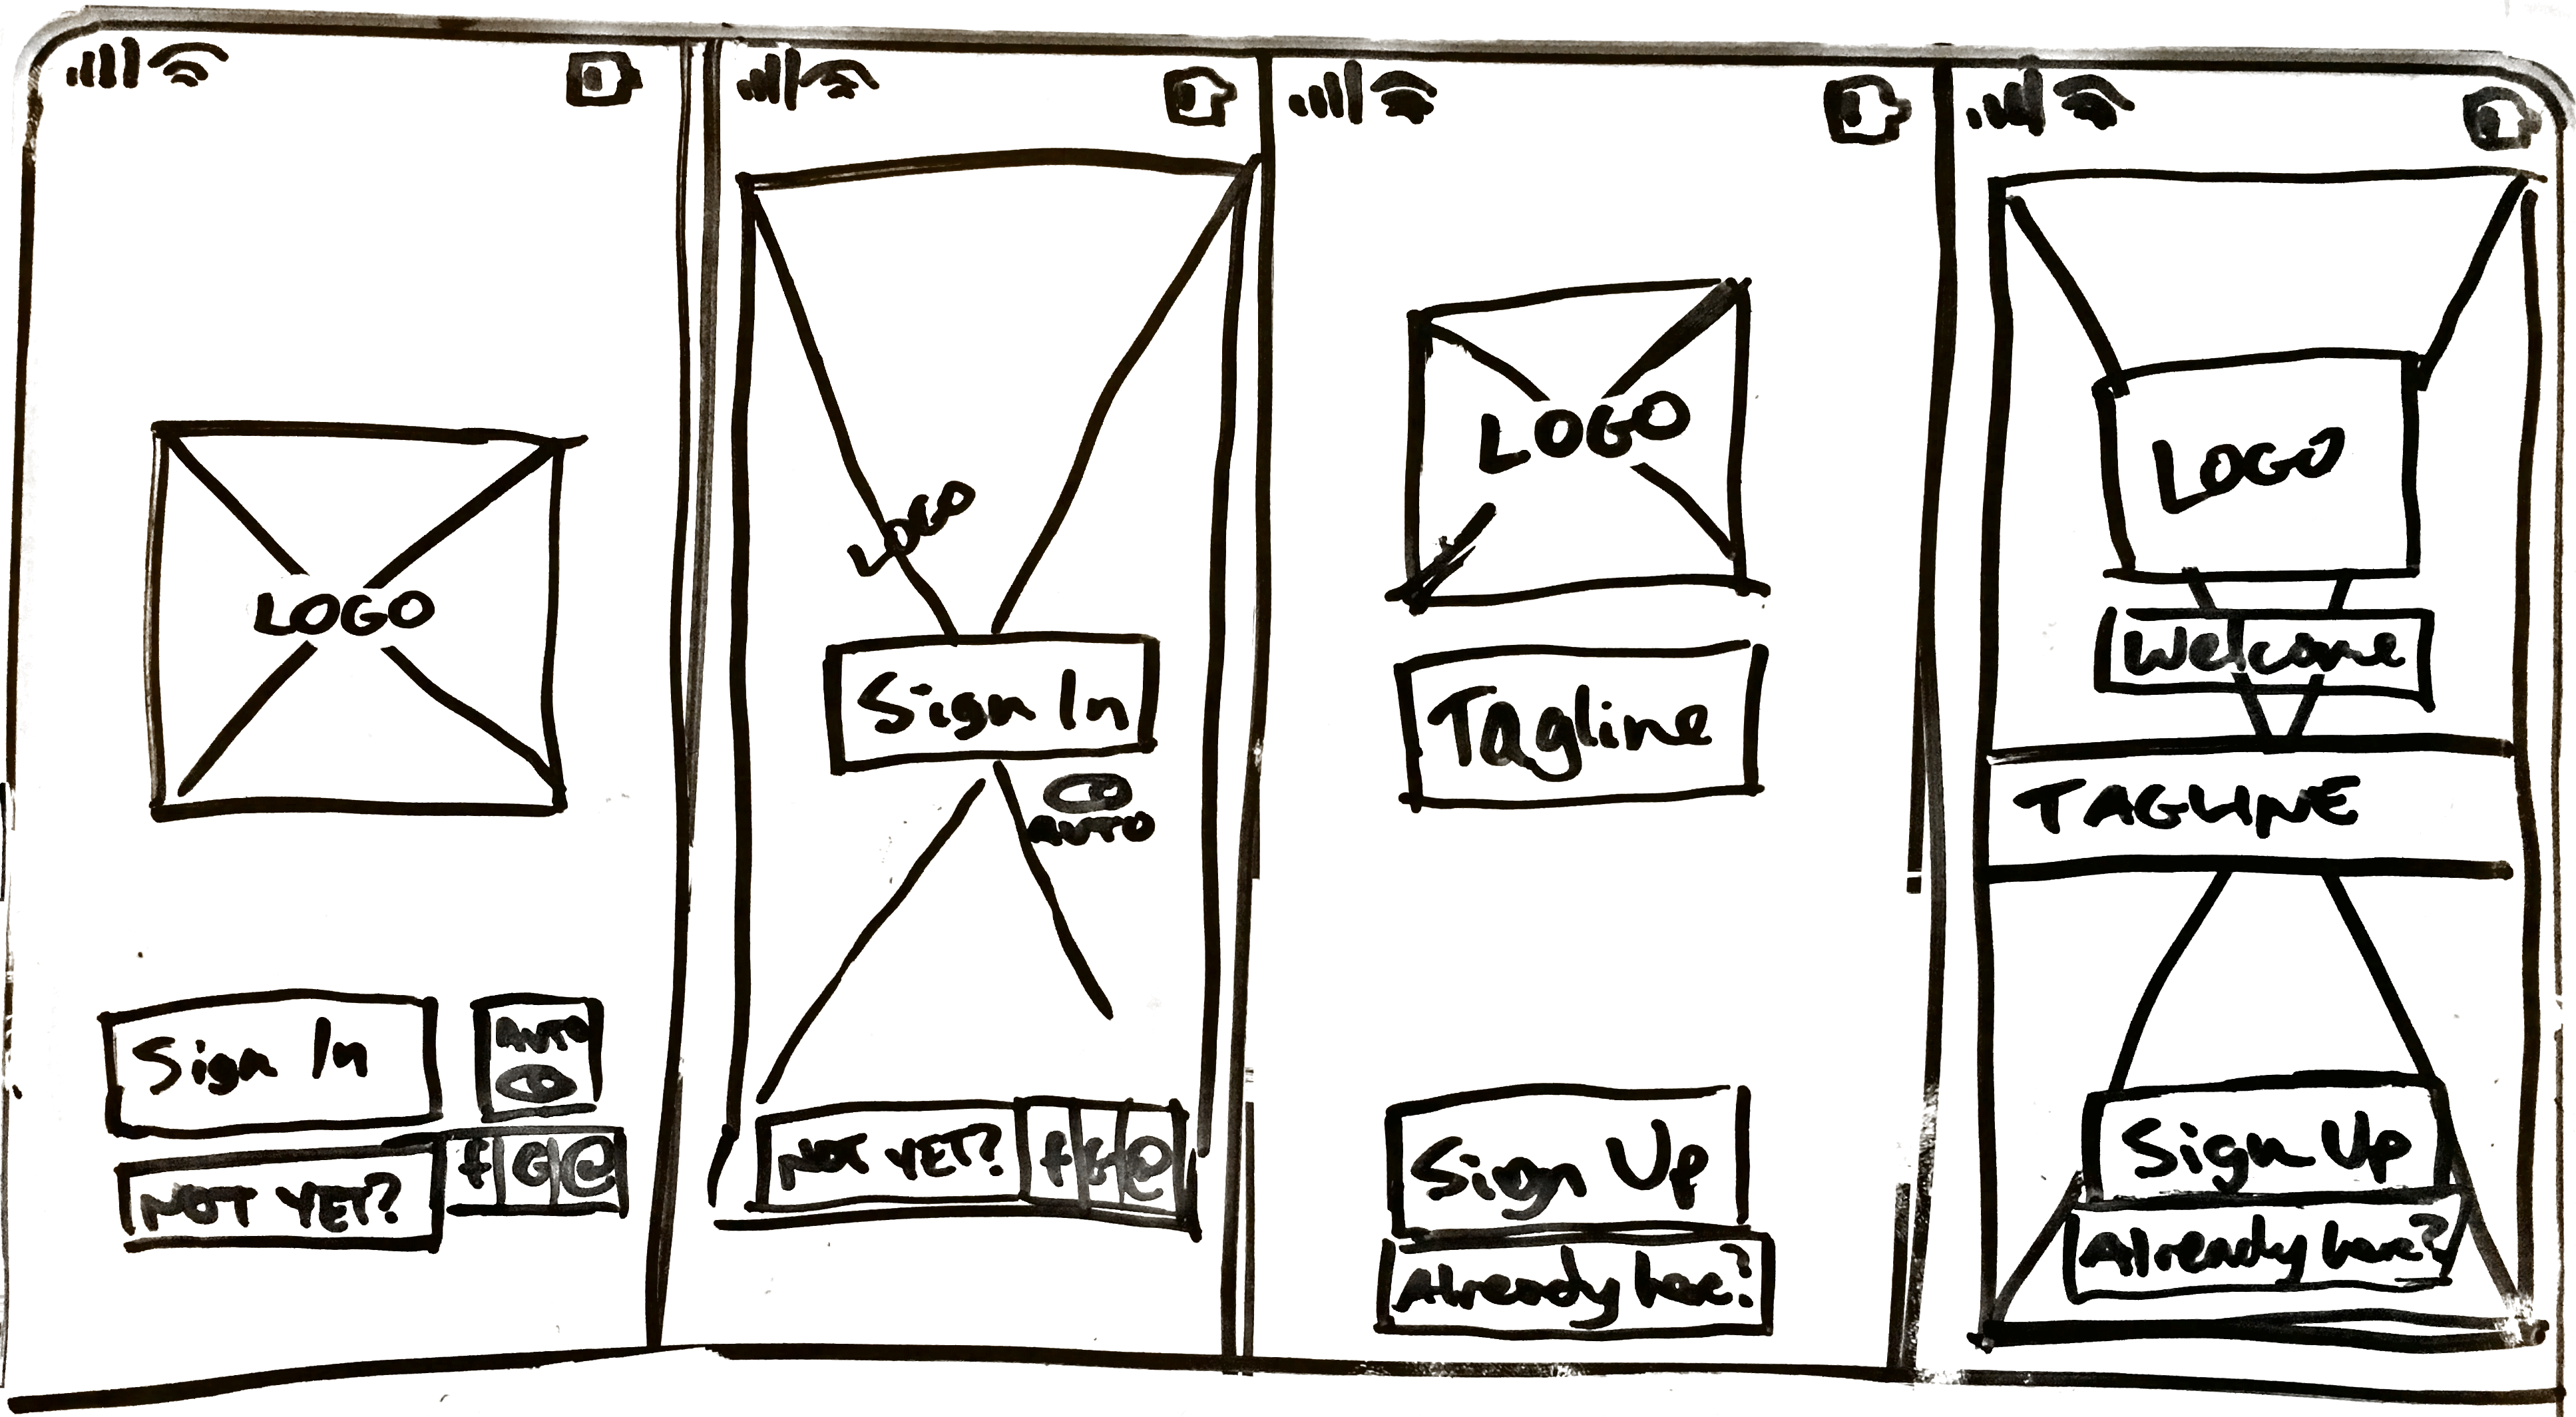 LOGO
Sign In
AUTO
NOT YET?
f G @
LOGO
Sign In
AUTO
NOT YET?
f G @
LOGO
Tagline
Sign Up
Already here?
LOGO
Welcome
TAGLINE
Sign Up
Already here?